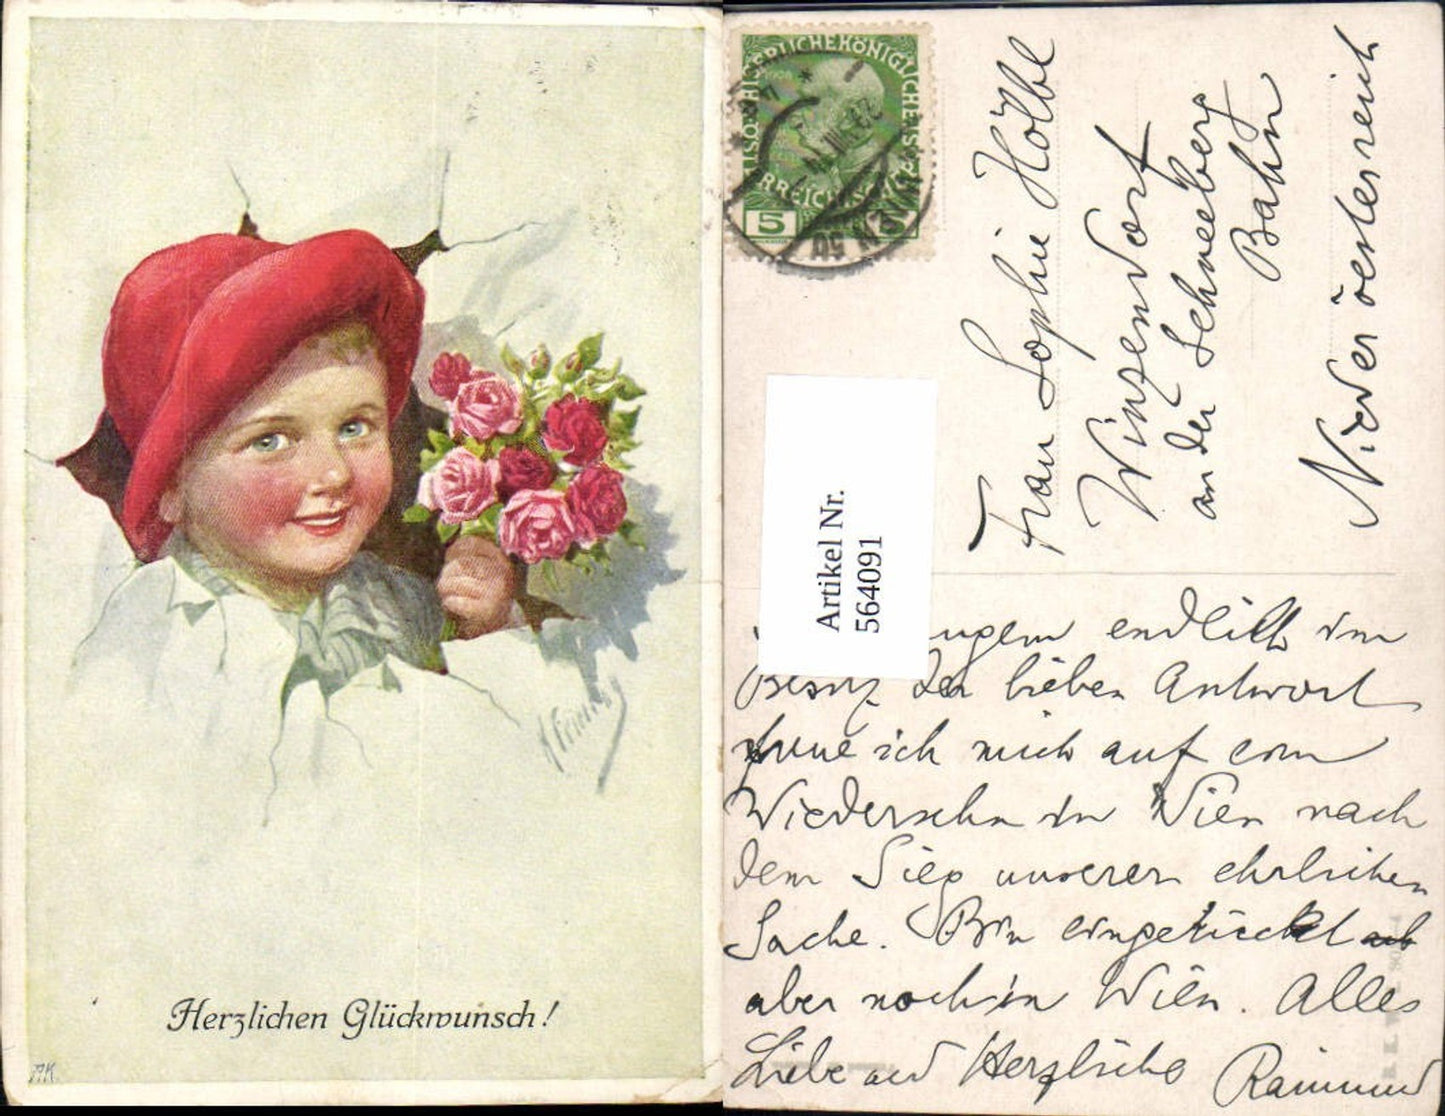 Herzlichen Glückwunsch!
KAISERLICHE KÖNIGLICHE
ÖSTERREICHISCHE
5
WIEN 50
Frau Sophie Hölbl
Winzendorf
an der Schneeberg
Bahn
Niederösterreich
Artikel Nr.
564091
endlich im
Besitz der lieben Antwort
freue ich mich auf ein
Wiedersehn in Wien nach
dem Sieg unserer ehrlichen
Sache. Bin eingerückt
aber noch in Wien. Alles
Liebe und Herzliche Raimund